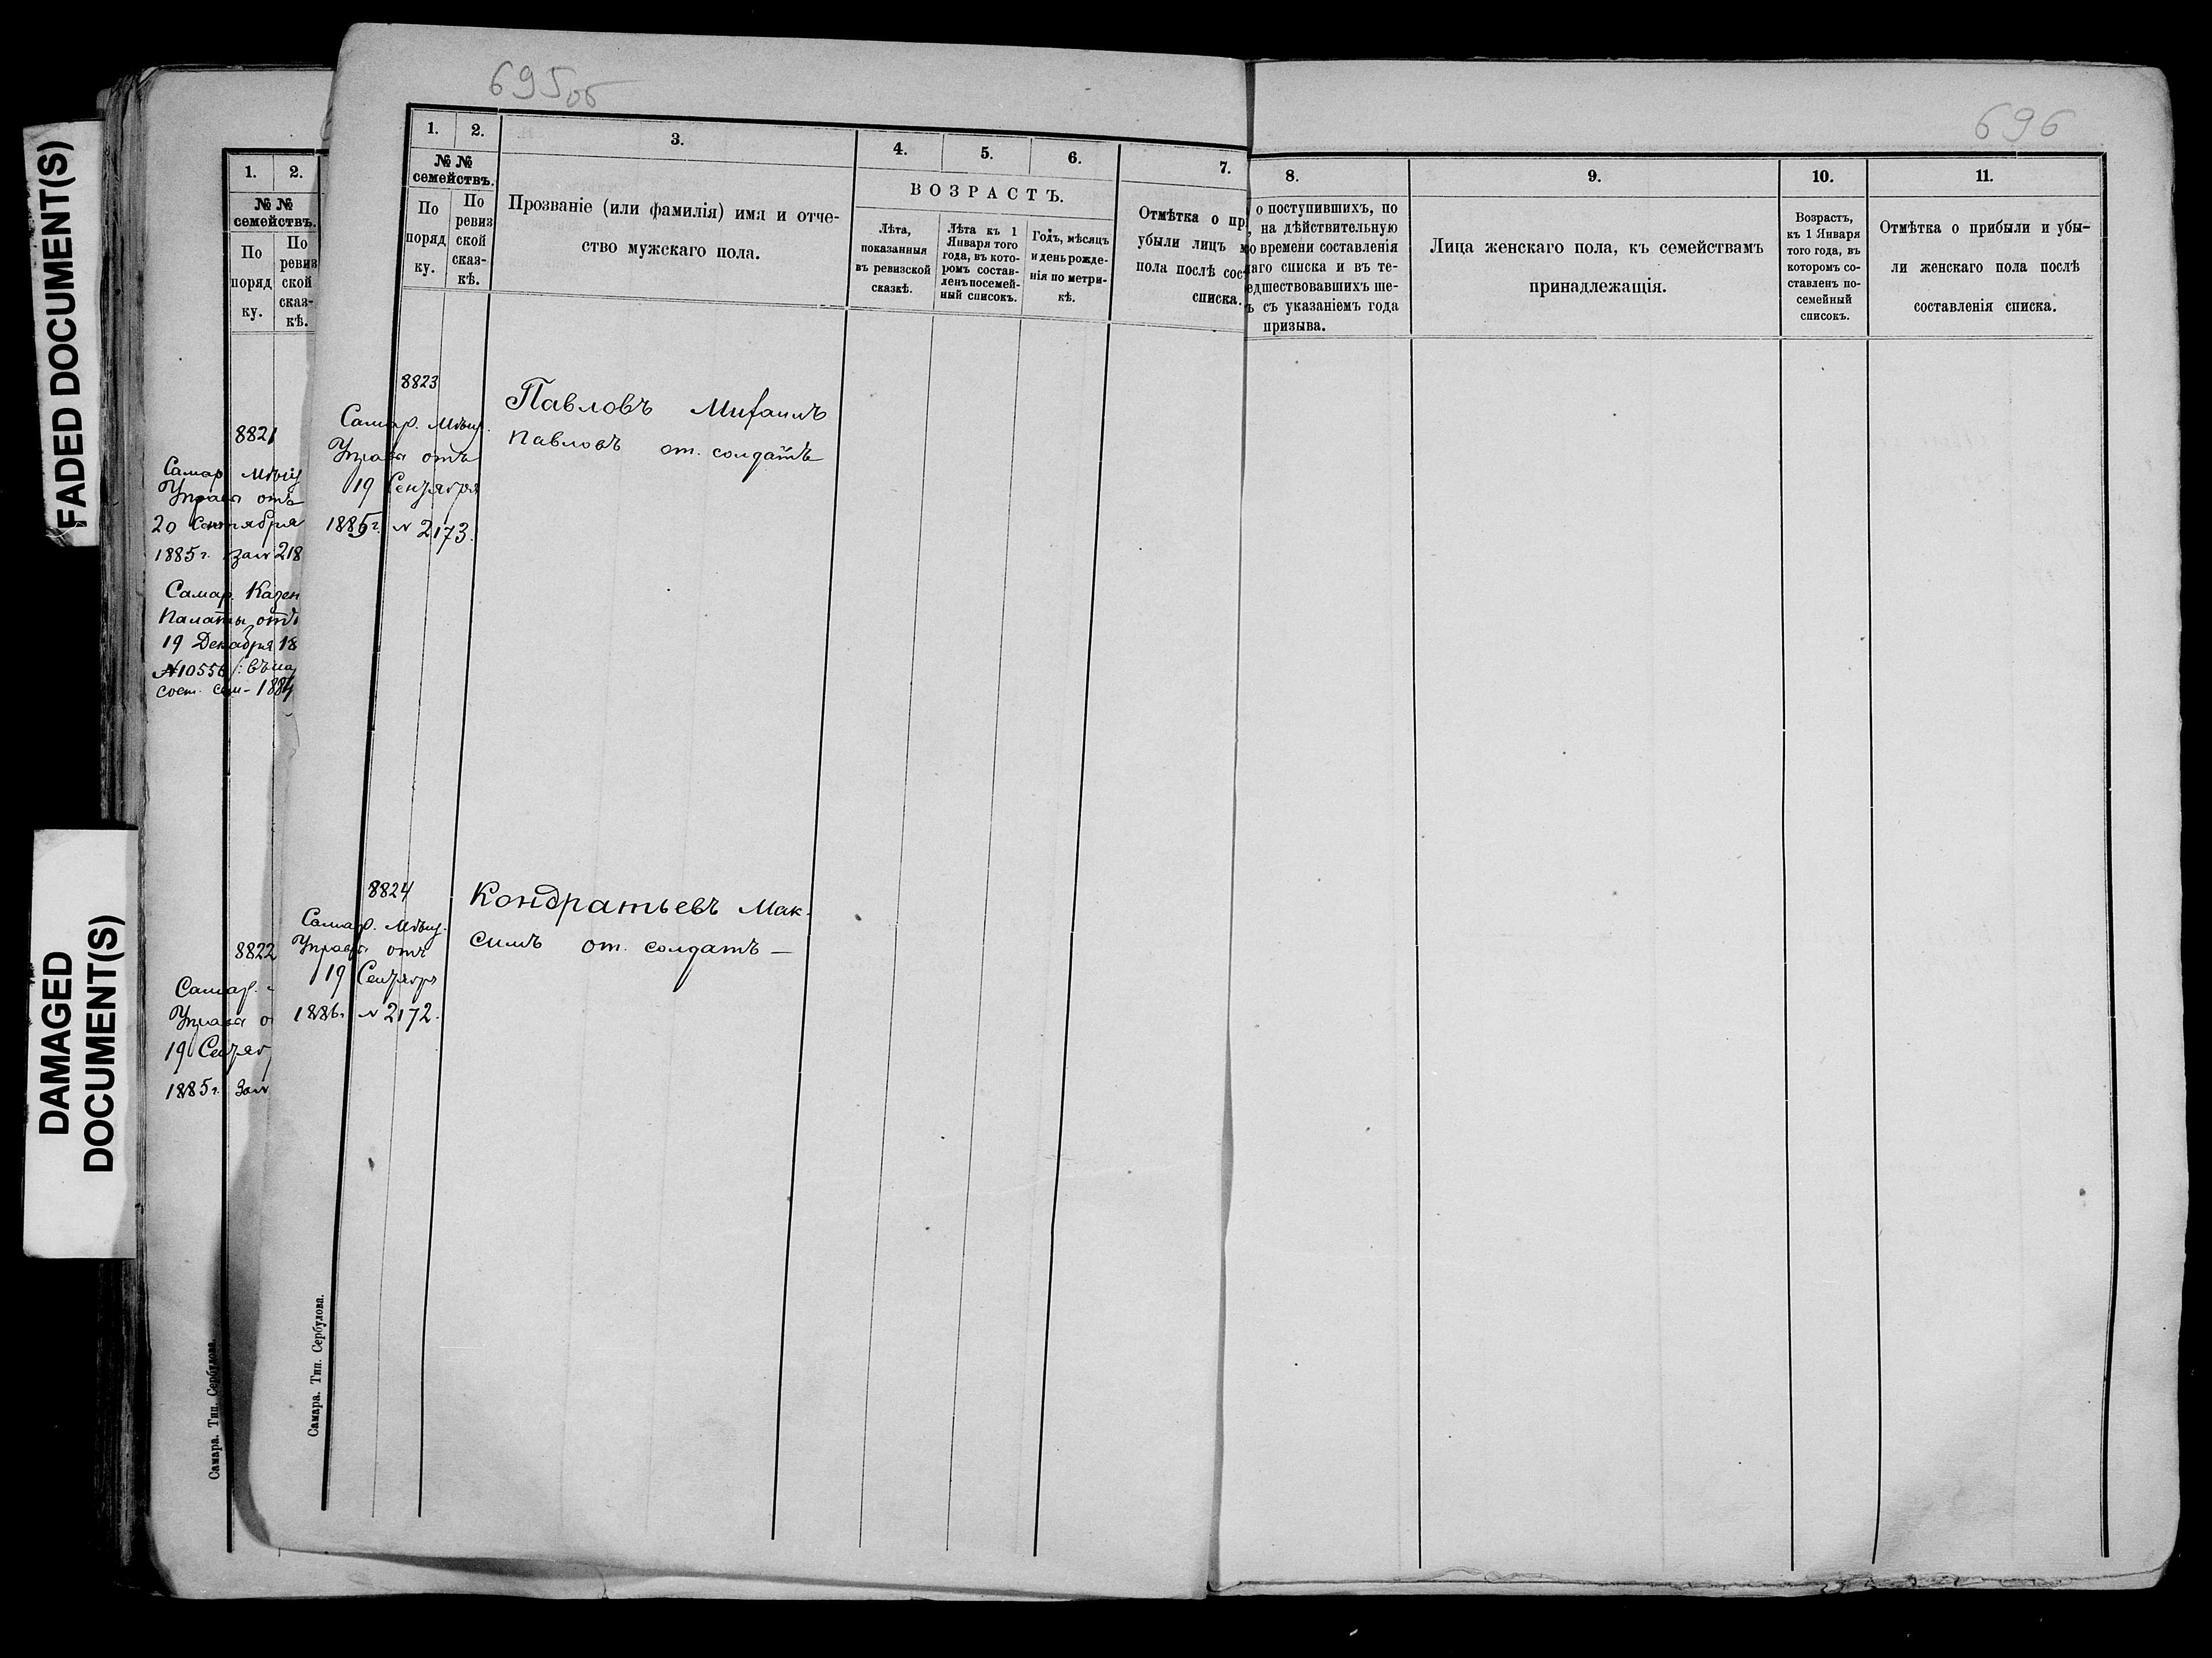 FADED DOCUMENT(S)
DAMAGED
DOCUMENT(S)
1. 2.
№ №
семействъ.
По
поряд
ку.
По
ревиз
ской
сказ-
кѣ.
8821
Самар. Мѣщ
Управы отъ
20 Сентября
1885 г. за № 218
Самар. Казен
Палаты отъ
19 Декабря 18
№ 10556
8822
Самар.
Управы о
19 Сентяб
1885 г. за №
Самара. Тип. Сербулова.
695об
1. 2. 3. 4. 5. 6. 7.
№ №
семействъ.
По
поряд
ку.
По
ревиз
ской
сказ-
кѣ.
Прозваніе (или фамилія) имя и отче-
ство мужскаго пола.
ВОЗРАСТЪ.
Лѣта,
показанныя
въ ревизской
сказкѣ.
Лѣта къ 1
Января того
года, въ кото-
ромъ состав-
ленъ посемей-
ный списокъ.
Годъ, мѣсяцъ
и день рожде-
нія по метри-
кѣ.
Отмѣтка о пр
убыли лицъ м
пола послѣ сос
списка.
8823
Самар. Мѣщ.
Управы отъ
19 Сентября
1885 г. № 2173.
Павловъ Михаилъ
Павловъ от. солдатъ
8824
Самар. Мѣщ.
Управы отъ
19 Сентября
188 г. № 2172.
Кондратьевъ Мак-
симъ от. солдатъ —
Самара. Тип. Сербулова.
696
8. 9. 10. 11.
о поступившихъ, по
, на дѣйствительную
о времени составленія
наго списка и въ те-
едшествовавшихъ ше-
ъ съ указаніемъ года
призыва.
Лица женскаго пола, къ семействамъ
принадлежащія.
Возрастъ,
къ 1 Января
того года, въ
которомъ со-
ставленъ по-
семейный
списокъ.
Отмѣтка о прибыли и убы-
ли женскаго пола послѣ
составленія списка.